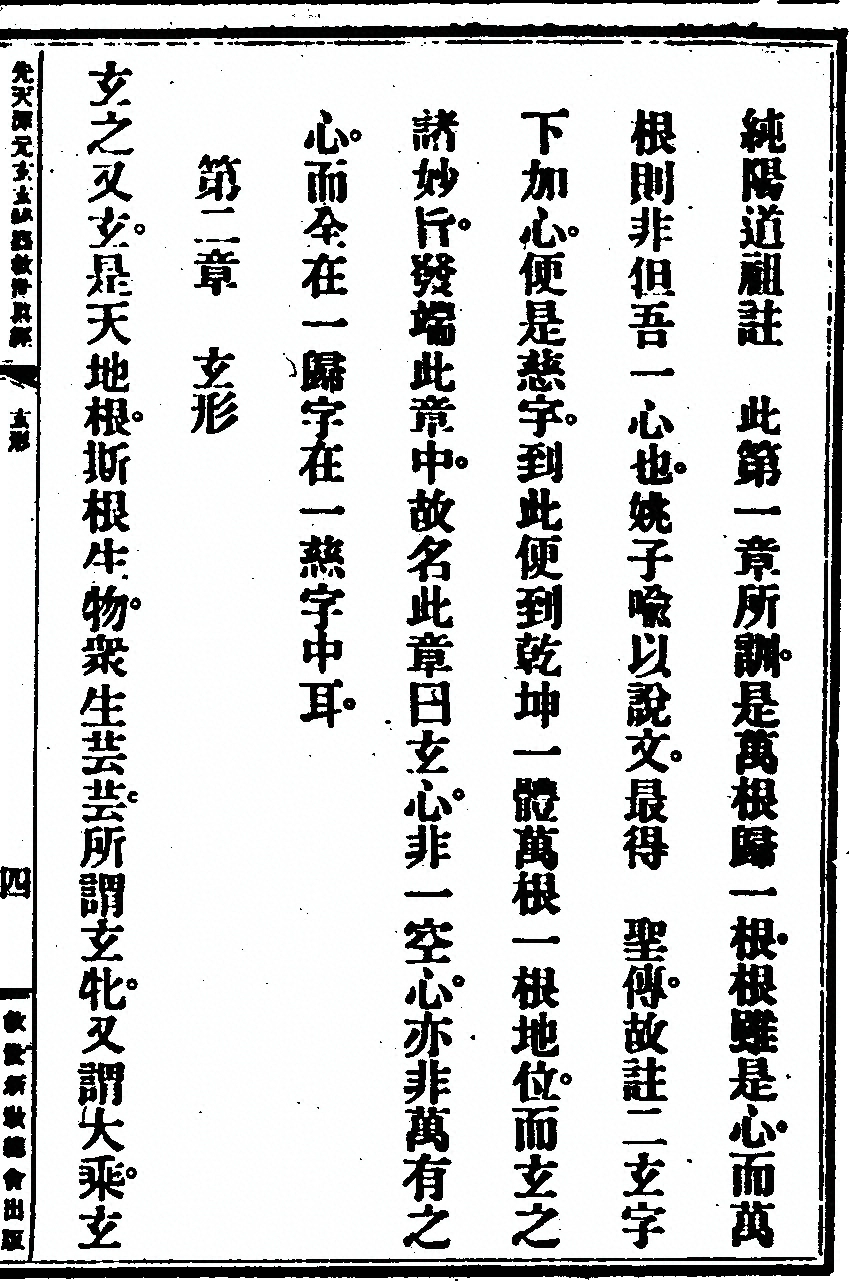 純陽道祖註　此第一章所訓。是萬根歸一根。根雖是心。而萬
根則非但吾一心也。姚子喩以說文。最得　聖傳。故註二玄字
下加心。便是慈字。到此便到乾坤一體萬根一根地位。而玄之
諸妙旨。發端此章中。故名此章曰玄心。非一空心。亦非萬有之
心。而全在一歸字在一慈字中耳。
第二章　玄形
玄之又玄。是天地根。斯根生物。衆生芸芸。所謂玄牝。又謂大乘。玄
玄形
四
救世新教總會出版